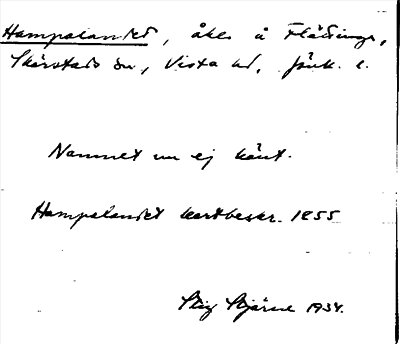 Hampalandet, åker å Flättinge,
Skärstads sn, Vista hd, Jönk. l.
Namnet nu ej känt.
Hampelandet kartbeskr. 1855
Stig Stjärne 1934.